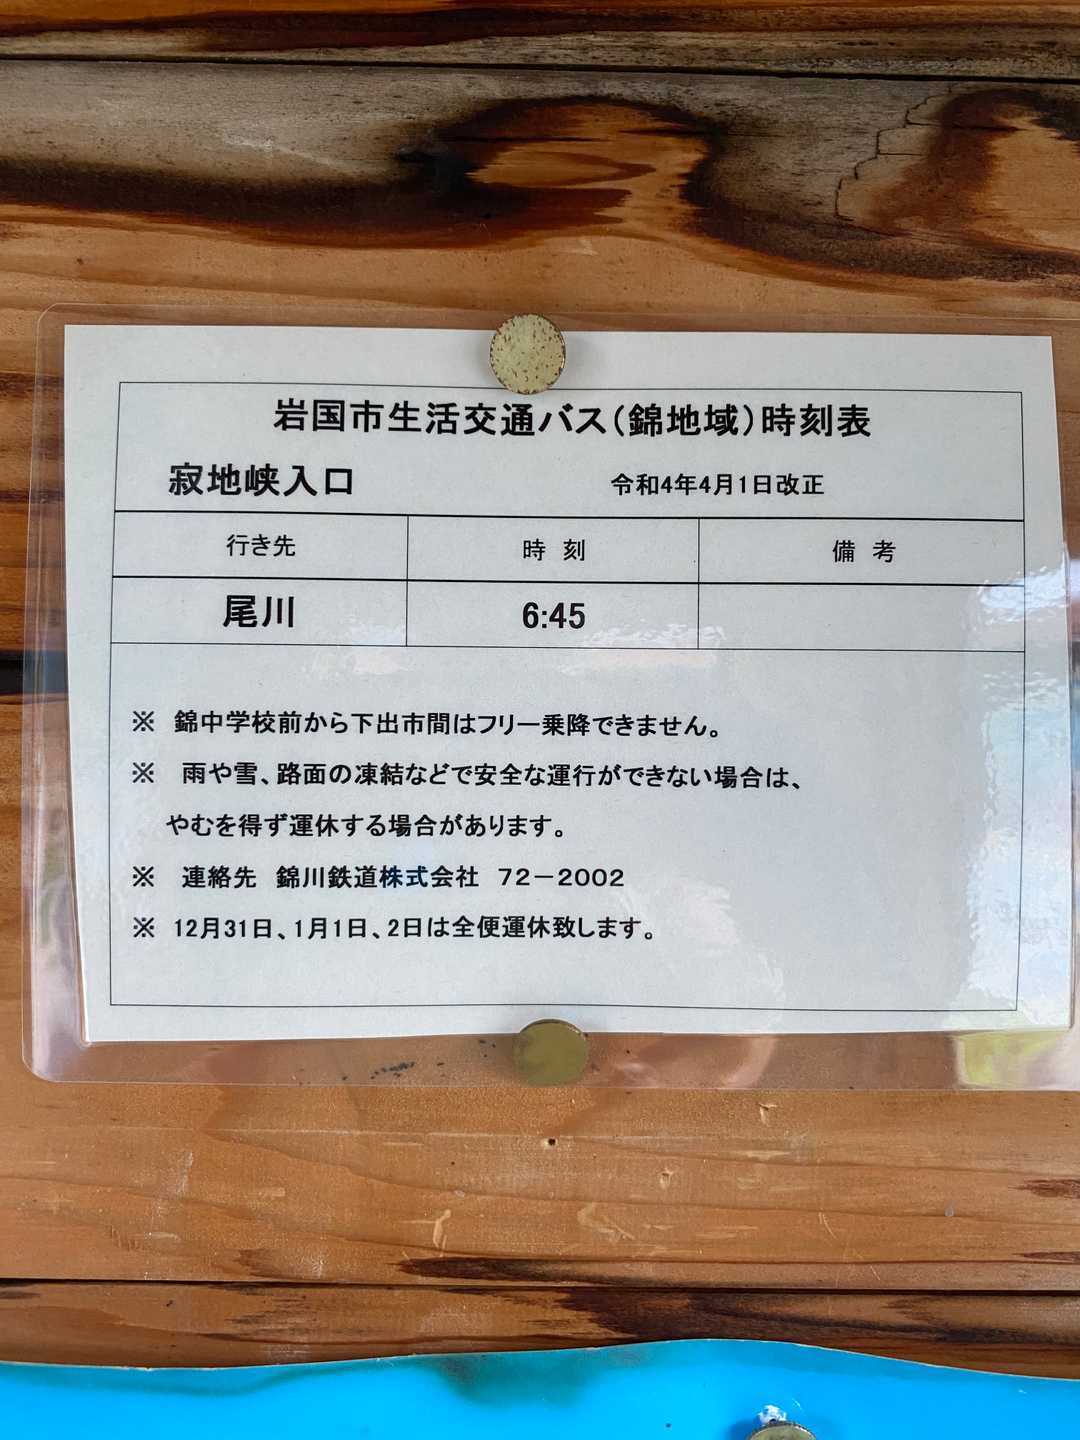 岩国市生活交通バス(錦地域)時刻表
寂地峡入口 令和4年4月1日改正
行き先 時 刻 備 考
尾川 6:45
※ 錦中学校前から下出市間はフリー乗降できません。
※ 雨や雪、路面の凍結などで安全な運行ができない場合は、
やむを得ず運休する場合があります。
※ 連絡先 錦川鉄道株式会社 72－2002
※ 12月31日、1月1日、2日は全便運休致します。